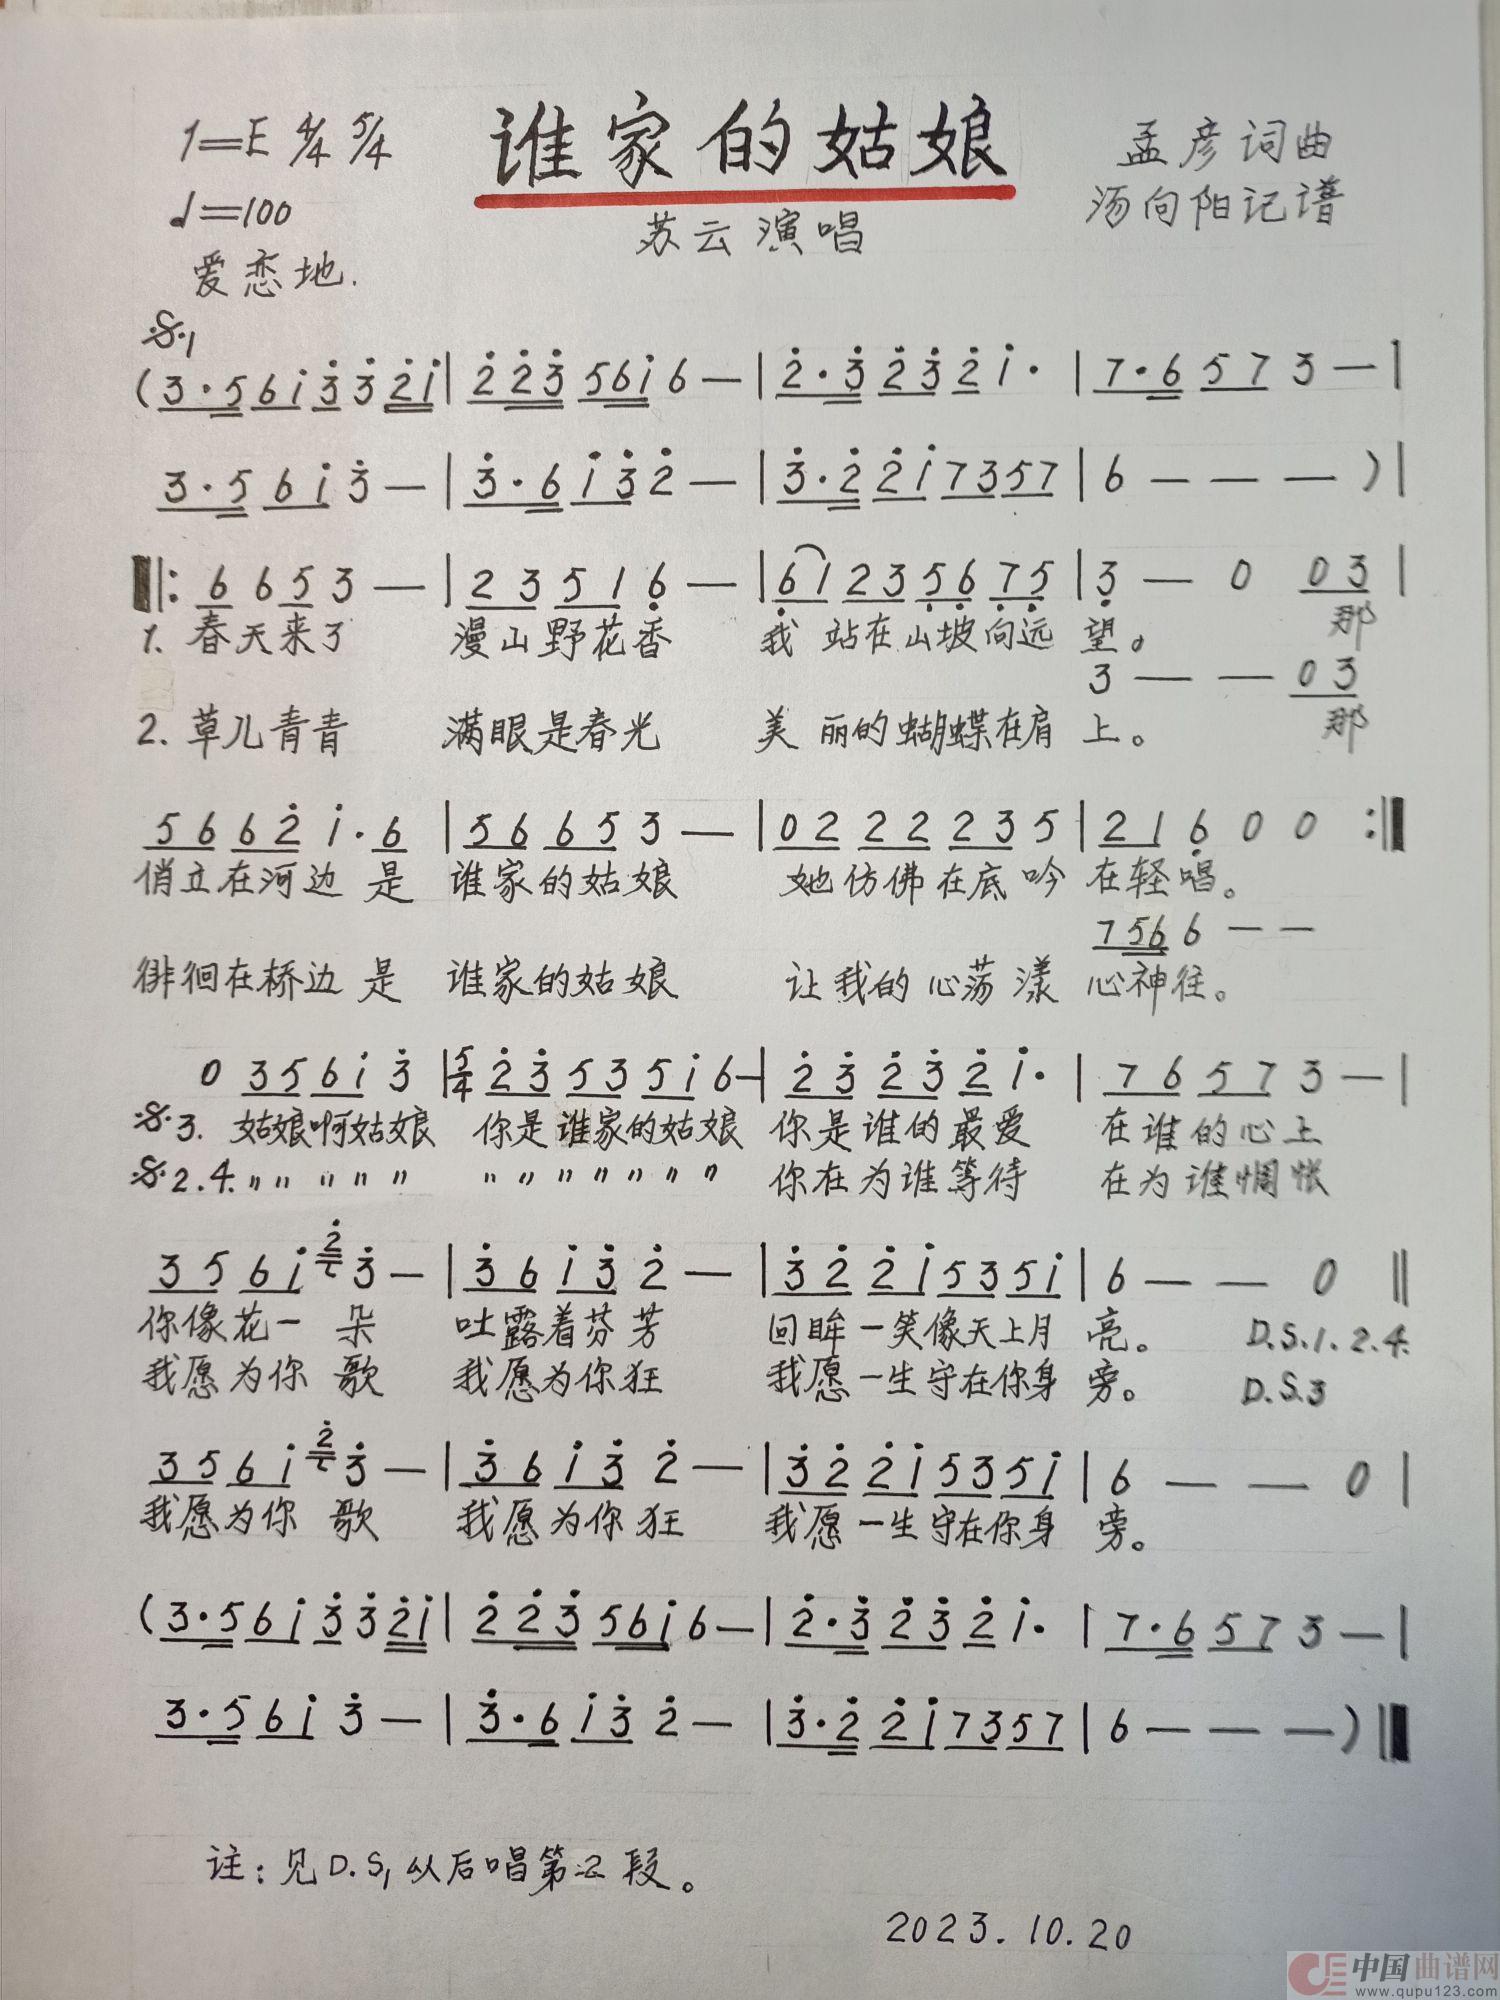 1=E 4/4 5/4
谁家的姑娘
孟彦词曲
♩=100
苏云演唱
汤向阳记谱
爱恋地.
𝄋.1
(3·5 6i 3̇ 3̇ 2̇i | 2̇ 2̇3̇ 56i 6 — | 2̇·3̇ 2̇3̇ 2̇ i· | 7·6 57 3 — |
3·5 6i 3̇ — | 3̇·6 i3̇ 2̇ — | 3̇·2̇ 2̇i 7357 | 6 — — — ) |
‖: 6 6 5 3 — | 23 51 6̣ — | 6̣1 23 5̣6̣ 7̣5̣ | 3̣ — 0 03 |
1. 春天来了 漫山野花香 我 站在山坡向远 望。 那
3 — — 03
2. 草儿青青 满眼是春光 美 丽的蝴蝶在肩 上。 那
56 62̇ i·6 | 56 65 3 — | 02 22 23 5 | 21 6̣ 0 0 :‖
俏立在河边 是 谁家的姑娘 她仿佛在底吟 在轻唱。
7 56 6 — —
徘徊在桥边 是 谁家的姑娘 让我的心荡漾 心神往。
0 35 6i 3̇ | 5/4 2̇3̇ 53 5i 6 — | 2̇3̇ 2̇3̇ 2̇ i· | 76 57 3 — |
𝄋.3. 姑娘啊姑娘 你是谁家的姑娘 你是谁的最爱 在谁的心上
𝄋.2.4. 〃〃 〃〃〃 〃〃〃〃〃〃〃 你在为谁等待 在为谁惆怅
35 6i 2̇ 3̇ — | 3̇6 i3̇ 2̇ — | 3̇2̇ 2̇i 53 5i | 6 — — 0 ‖
你像花一朵 吐露着芬芳 回眸一笑像天上月 亮。 D.S.1.2.4.
我愿为你歌 我愿为你狂 我愿一生守在你身 旁。 D.S.3
35 6i 2̇ 3̇ — | 3̇6 i3̇ 2̇ — | 3̇2̇ 2̇i 53 5i | 6 — — 0 |
我愿为你歌 我愿为你狂 我愿一生守在你身 旁。
(3·5 6i 3̇ 3̇ 2̇i | 2̇ 2̇3̇ 56i 6 — | 2̇·3̇ 2̇3̇ 2̇ i· | 7·6 57 3 — |
3·5 6i 3̇ — | 3̇·6 i3̇ 2̇ — | 3̇·2̇ 2̇i 7357 | 6 — — — ) ‖
注:见D.S,从后唱第2段。
2023.10.20
中国曲谱网
www.qupu123.com